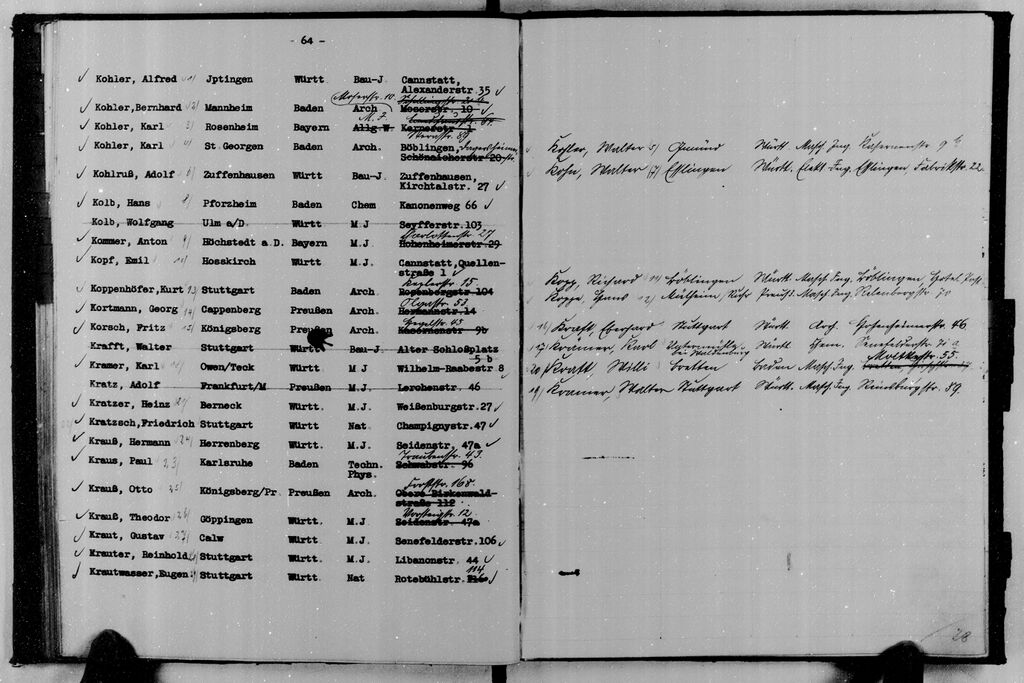 - 64 -
Kohler, Alfred 1) Jptingen Württ Bau-J Cannstatt,
Alexanderstr. 35
Moserstr. 10.
Kohler, Bernhard 2) Mannheim Baden Arch Moserstr. 10
M.J.
Kohler, Karl 3) Rosenheim Bayern Allg W Kernerstr. 1
Kohler, Karl 4) St Georgen Baden Arch. Böblingen,
Schönaicherstr 20
Kohlruß, Adolf 6) Zuffenhausen Württ Bau-J. Zuffenhausen,
Kirchtalstr. 27
Kolb, Hans 8) Pforzheim Baden Chem Kanonenweg 66
Kolb, Wolfgang Ulm a/D. Württ M.J Seyfferstr. 103
Charlottenstr 27
Kommer, Anton 9) Höchstedt a.D. Bayern M.J. Hohenheimerstr. 29
Kopf, Emil 10) Hosskirch Württ M.J. Cannstatt, Quellen-
straße 1
Keplerstr 15
Koppenhöfer, Kurt 13) Stuttgart Baden Arch. Rosenbergstr 104
Olgastr. 53
Kortmann, Georg 14) Cappenberg Preußen Arch. Hermannstr. 14
Hegelstr. 43
Korsch, Fritz 15) Königsberg Preußen Arch. Kasernenstr 9b
Krafft, Walter Stuttgart Württ Bau-J Alter Schloßplatz
5 b
Kramer, Karl 18) Owen/Teck Württ M.J Wilhelm-Raabestr 8
Kratz, Adolf Frankfurt/M Preußen M.J. Lerchenstr. 46
Kratzer, Heinz 21) Berneck Württ. M.J. Weißenburgstr. 27
Kratzsch, Friedrich Stuttgart Württ Nat Champignystr. 47
Krauß, Hermann 24) Herrenberg Württ. M.J. Seidenstr. 47a
Traubenstr. 43.
Kraus, Paul 23) Karlsruhe Baden Techn. Schwabstr. 96
Phys.
Forststr. 168.
Krauß, Otto 25) Königsberg/Pr. Preußen Arch. Obere Birkenwald-
straße 112
Vorsteigstr. 12.
Krauß, Theodor 26) Göppingen Württ. M.J Seidenstr. 47a
Kraut, Gustav 27) Calw Württ. M.J. Senefelderstr. 106
Krauter, Reinhold Stuttgart Württ M.J. Libanonstr. 44
114
Krautwasser, Eugen Stuttgart Württ Nat Rotebühlstr.
Kohler, Walter 5) Gmünd Württ. Masch. Ing. Kasernenstr 9
Kohn, Walter (7) Eßlingen Württ. Elekt. Ing. Eßlingen Fabrikstr. 22.
Kopp, Richard 11) Böblingen Württ. Masch. Ing. Böblingen, Hotel Post
Koppe, Hans 12) Mülheim/Ruhr Preuß. Masch. Ing. Silberburgstr. 70
16) Kraft, Eberhard Stuttgart Württ. Arch. Hohenheimerstr. 46
17) Krämer, Karl Württ. Chem. Senefelderstr. 71 a
bei Waldenburg
Moltkestr. 55.
20) Kratt, Willi Bretten Baden Masch. Ing. Bretten,
19) Kramer, Walter Stuttgart Württ. Masch. Ing. Reinsburgstr. 89.
28